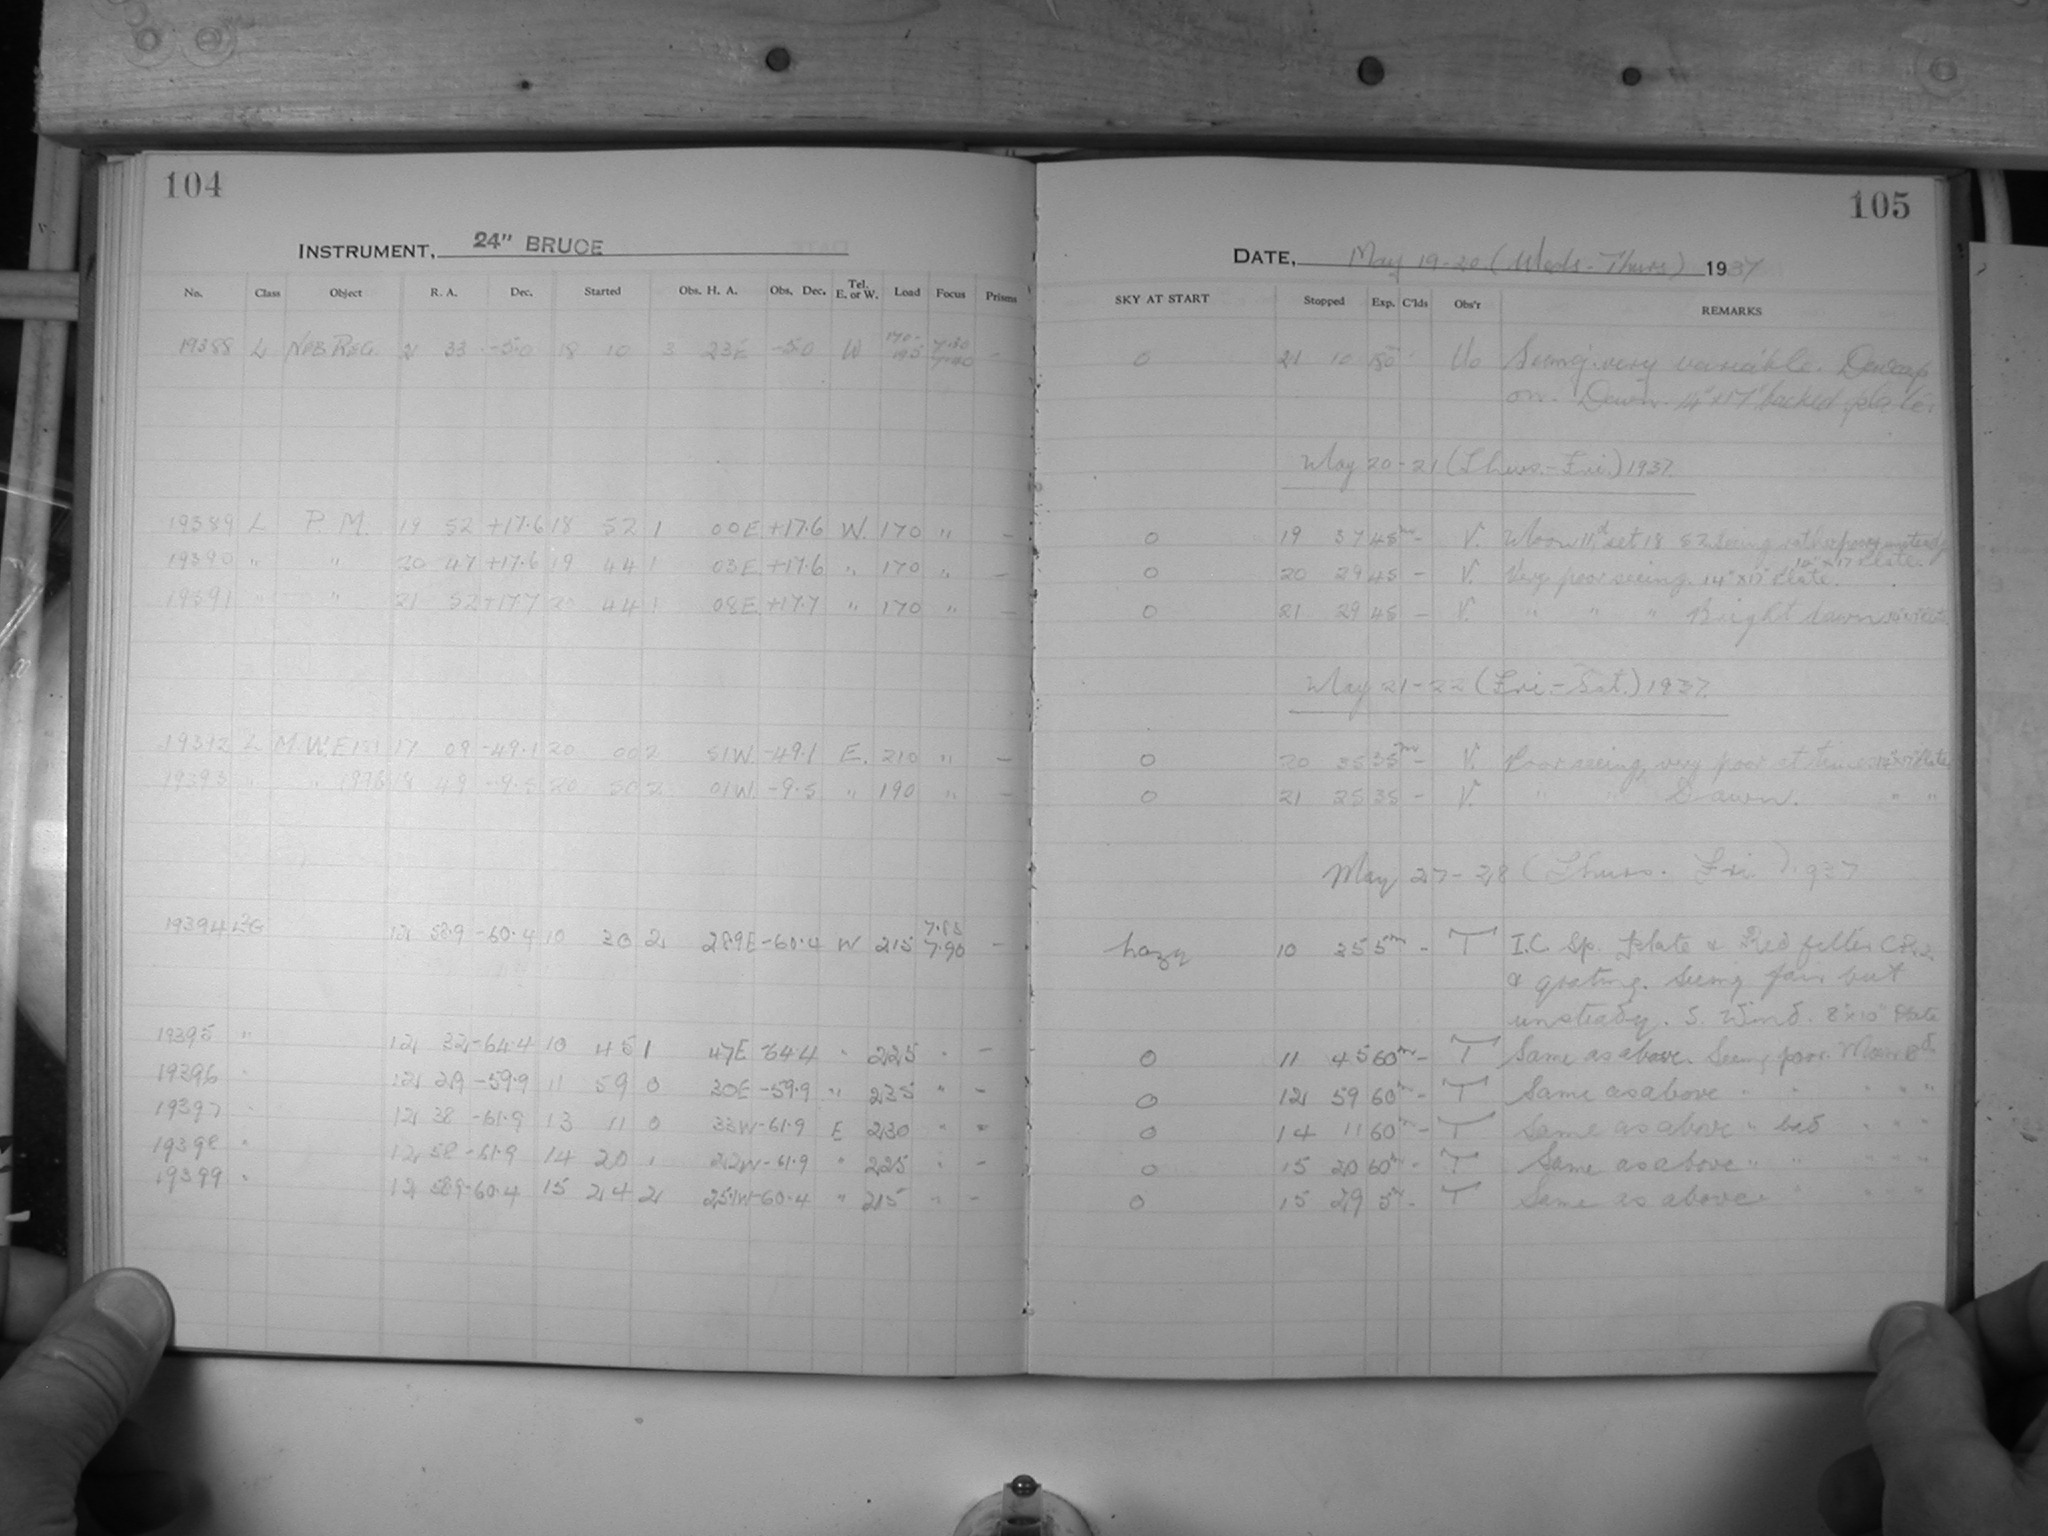 104
105
INSTRUMENT, 24" BRUCE
DATE, May 19-20 (Weds.-Thurs) 1937
No. Class Object R. A. Dec. Started Obs. H. A. Obs. Dec. Tel. E. or W. Load Focus Prisms
SKY AT START Stopped Exp. C'lds Obs'r REMARKS
19388 L Neb Reg. 21 33 -50 18 10 3 23E -50 W 170- 195 7.30 7.40 -
0 21 10 180 Seeing very variable. Dewcap
on. Dawn. 14"x17" backed plate.
May 20-21 (Thurs.-Fri.) 1937.
19389 L P. M. 19 52 +17.6 18 52 1 00E +17.6 W. 170 " -
0 19 37 45m - V. Moon 11d set 18 52. Seeing unsteady
14"x17" Plate.
19390 " " 20 47 +17.6 19 44 1 03E +17.6 " 170 " -
0 20 29 45 - V. Very poor seeing. 14"x17" Plate.
19391 " " 21 52 +17.7 20 44 1 08E +17.7 " 170 " -
0 21 29 45 - V. " " " Bright dawn 14"x17" Plate
May 21-22 (Fri.-Sat.) 1937.
19392 L M.W.F. 17 09 -49.1 20 00 2 51W. -49.1 E. 210 " -
0 20 35 35m - V. Poor seeing, very poor at times 14"x17" Plate
19393 " " 1976 18 49 -9.5 20 50 2 01W. -9.5 " 190 " -
0 21 25 35 - V. " " Dawn. " "
May 27-28 (Thurs. Fri.) 1937
19394 12 58.9 -60.4 10 30 2 28.9E -60.4 W 215 7.85 7.90 -
hazy 10 35 5m - T I.C. Sp. Plate & Red filter
& grating. Seeing fair but
unsteady. S. Wind. 8"x10" Plate
19395 " 12 32 -64.4 10 45 1 47E -64.4 " 225 " -
0 11 45 60m - T Same as above. Seeing poor.
19396 " 12 29 -59.9 11 59 0 30E -59.9 " 235 " -
0 12 59 60m - T Same as above " " " "
19397 " 12 38 -61.9 13 11 0 33W -61.9 E 230 " "
0 14 11 60m - T Same as above " bad " " "
19398 " 12 58 -61.9 14 20 1 22W -61.9 " 225 " -
0 15 20 60m - T Same as above " " " " "
19399 " 12 58.9 -60.4 15 24 2 25.1W -60.4 " 215 " -
0 15 29 5m - T Same as above " " " " "